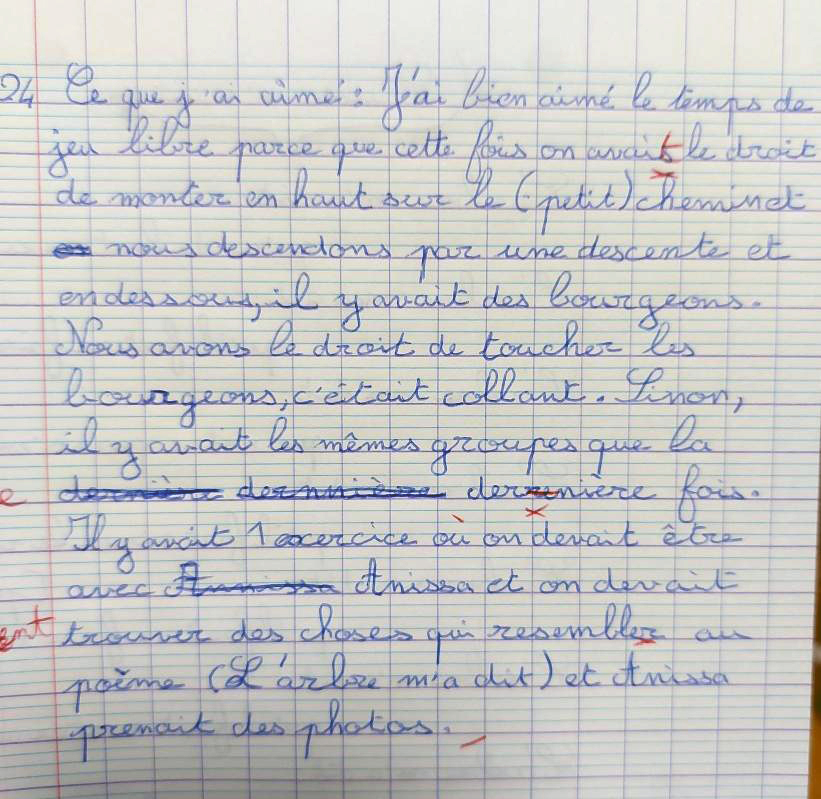 24 Ce que j'ai aimé : J'ai bien aimé le temps de
jeu libre parce que cette fois on avait le droit
de monter en haut sur le (petit) cheminet
nous descendons par une descente et
en dessous, il y avait des bourgeons.
Nous avons le droit de toucher les
bourgeons, c'était collant. Sinon,
il y avait les mêmes groupes que la
e dernière dernnière dernière fois.
Il y avait 1 exercice où on devait être
avec Annissa Anissa et on devait
ent trouver des choses qui resembler au
poème (L'arbre m'a dit) et Anissa
prenait des photos.